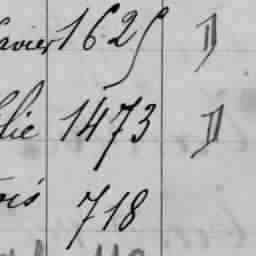 avier 1625 D
lie 1473 D
ois 718